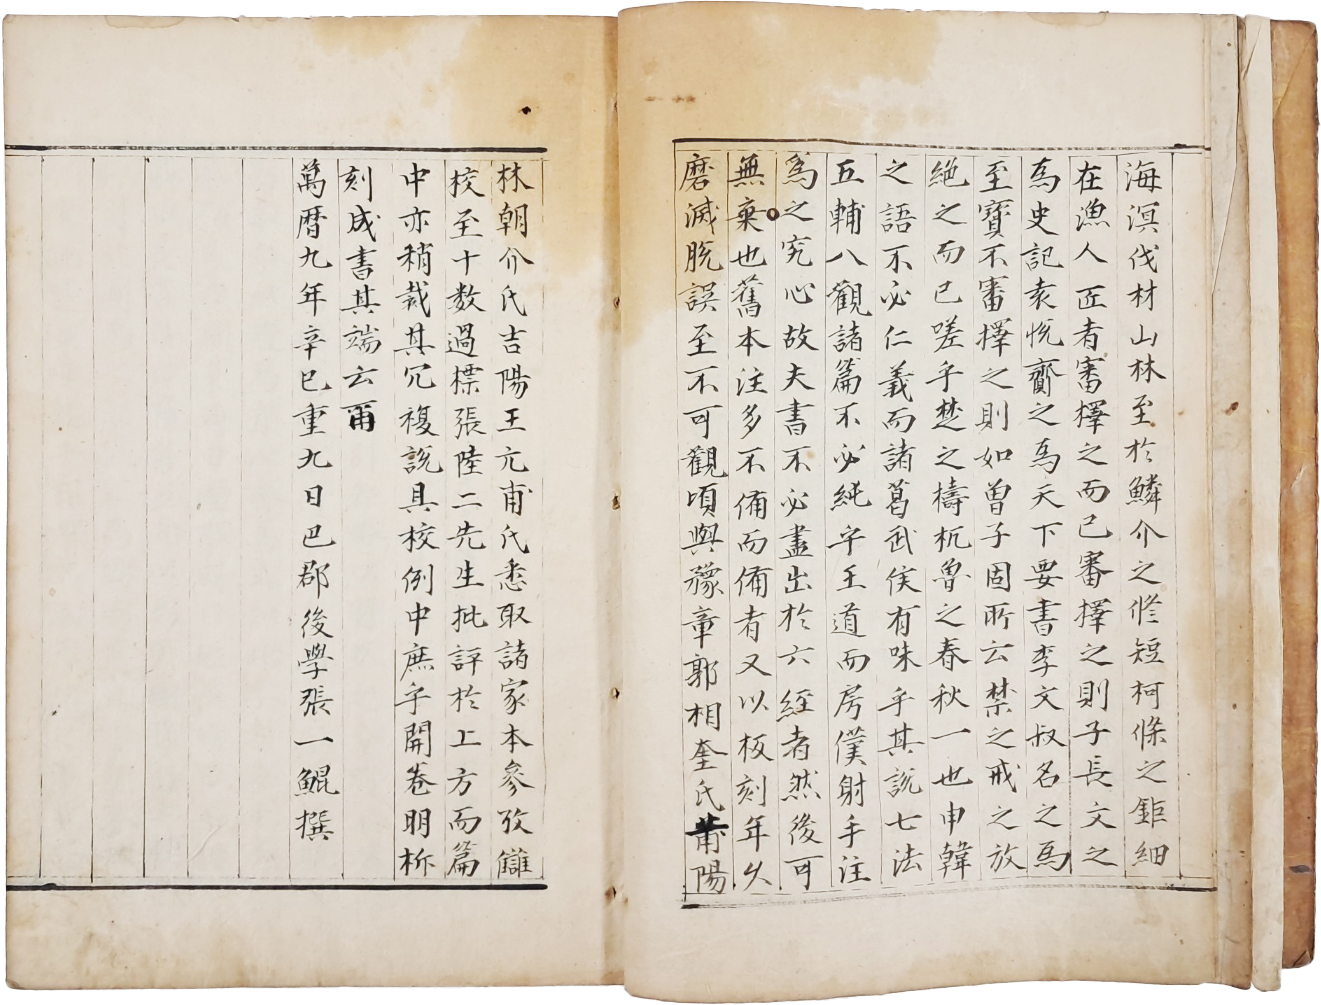 海溟伐材山林至於鱗介之修短柯條之鉅細
在漁人匠者審擇之而已審擇之則子長文之
為史記袁悅齎之為天下要書李文叔名之為
至寶不審擇之則如曾子固所云禁之戒之放
絕之而已嗟乎楚之檮杌魯之春秋一也申韓
之語不必仁義而諸葛武侯有味乎其說七法
五輔八觀諸篇不必純乎王道而房僕射手注
為之究心故夫書不必盡出於六經者然後可
無棄也舊本注多不備而備者又以板刻年久
磨滅脫誤至不可觀頃與豫章郭相奎氏莆陽
林朝介氏吉陽王亢甫氏悉取諸家本參攷讎
校至十數過標張陸二先生批評於上方而篇
中亦稍裁其冗複說具校例中庶乎開卷明析
刻成書其端云爾
萬曆九年辛巳重九日巴郡後學張一鯤撰